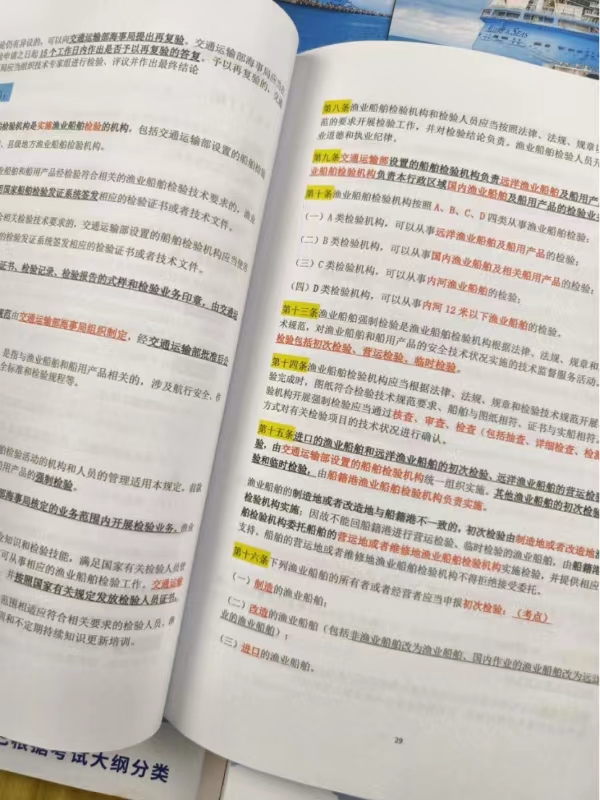 仍有异议的，可以向交通运输部海事局提出再复验，交通运输部海事局应当在
申请之日起 15 个工作日内作出是否予以再复验的答复，予以再复验的，交通
局应当组织技术专家组进行检验、评议并作出最终结论
检验机构是实施渔业船舶检验的机构，包括交通运输部设置的船舶检验
、县级地方渔业船舶检验机构。
舶和船用产品经检验符合相关的渔业船舶检验技术要求的，渔业
国家船舶检验发证系统签发相应的检验证书或者技术文件。
合相关检验技术要求的，交通运输部设置的船舶检验机构应当使用
检验发证系统签发相应的检验证书或者技术文件。
证书、检验记录、检验报告的式样和检验业务印章，由交通运
范由交通运输部海事局组织制定，经交通运输部批准后公
，是指与渔业船舶和船用产品相关的，涉及航行安全、作
全标准和检验规程等。
检验活动的机构和人员的管理适用本规定，前款
用产品的强制检验。
海事局核定的业务范围内开展检验业务，渔业
业知识和检验技能，满足国家有关检验人员
可从事相应的渔业船舶检验工作。交通运输
，并按照国家有关规定发放检验人员证书。
范围相适应符合相关要求的检验人员，
训和不定期持续知识更新培训。
第八条渔业船舶检验机构和检验人员应当按照法律、法规、规章以
范的要求开展检验工作，并对检验结论负责。渔业船舶检验人员
业道德和执业纪律。
第九条交通运输部设置的船舶检验机构负责远洋渔业船舶及船用产品
业船舶检验机构负责本行政区域国内渔业船舶及船用产品的检验业
第十条渔业船舶检验机构按照 A、B、C、D 四类从事渔业船舶检验。
（一）A 类检验机构，可以从事远洋渔业船舶及船用产品的检验；
（二）B 类检验机构，可以从事国内渔业船舶及相关船用产品的检验；
（三）C 类检验机构，可以从事内河渔业船舶的检验；
（四）D 类检验机构，可以从事内河 12 米以下渔业船舶的检验。
第十三条渔业船舶强制检验是渔业船舶检验机构根据法律、法规、规章和
术规范，对渔业船舶和船用产品的安全技术状况实施的技术监督服务活动。
检验包括初次检验、营运检验、临时检验。
第十四条渔业船舶检验机构应当根据法律、法规、规章和检验技术规范开展
验完成时，图纸符合检验技术规范要求、船舶与图纸相符、证书与实船相符。
验机构开展强制检验应当通过核查、审查、检查（包括抽查、详细检查、检测
方式对有关检验项目的技术状况进行确认。
第十五条进口的渔业船舶和远洋渔业船舶的初次检验、远洋渔业船舶的营运检
验，由交通运输部设置的船舶检验机构统一组织实施。其他渔业船舶的初次检验
验和临时检验，由船籍港渔业船舶检验机构负责实施。
渔业船舶的制造地或者改造地与船籍港不一致的，初次检验由制造地或者改造地渔
检验机构实施；因故不能回船籍港进行营运检验、临时检验的渔业船舶，由船籍港
船检验机构委托船舶的营运地或者维修地渔业船舶检验机构实施检验，并提供相应
支持。船舶的营运地或者维修地渔业船舶检验机构不得拒绝接受委托。
第十六条下列渔业船舶的所有者或者经营者应当申报初次检验：（考点）
（一）制造的渔业船舶；
（二）改造的渔业船舶（包括非渔业船舶改为渔业船舶、国内作业的渔业船舶改为远洋
业的渔业船舶）；
（三）进口的渔业船舶。
29
根据考试大纲分类